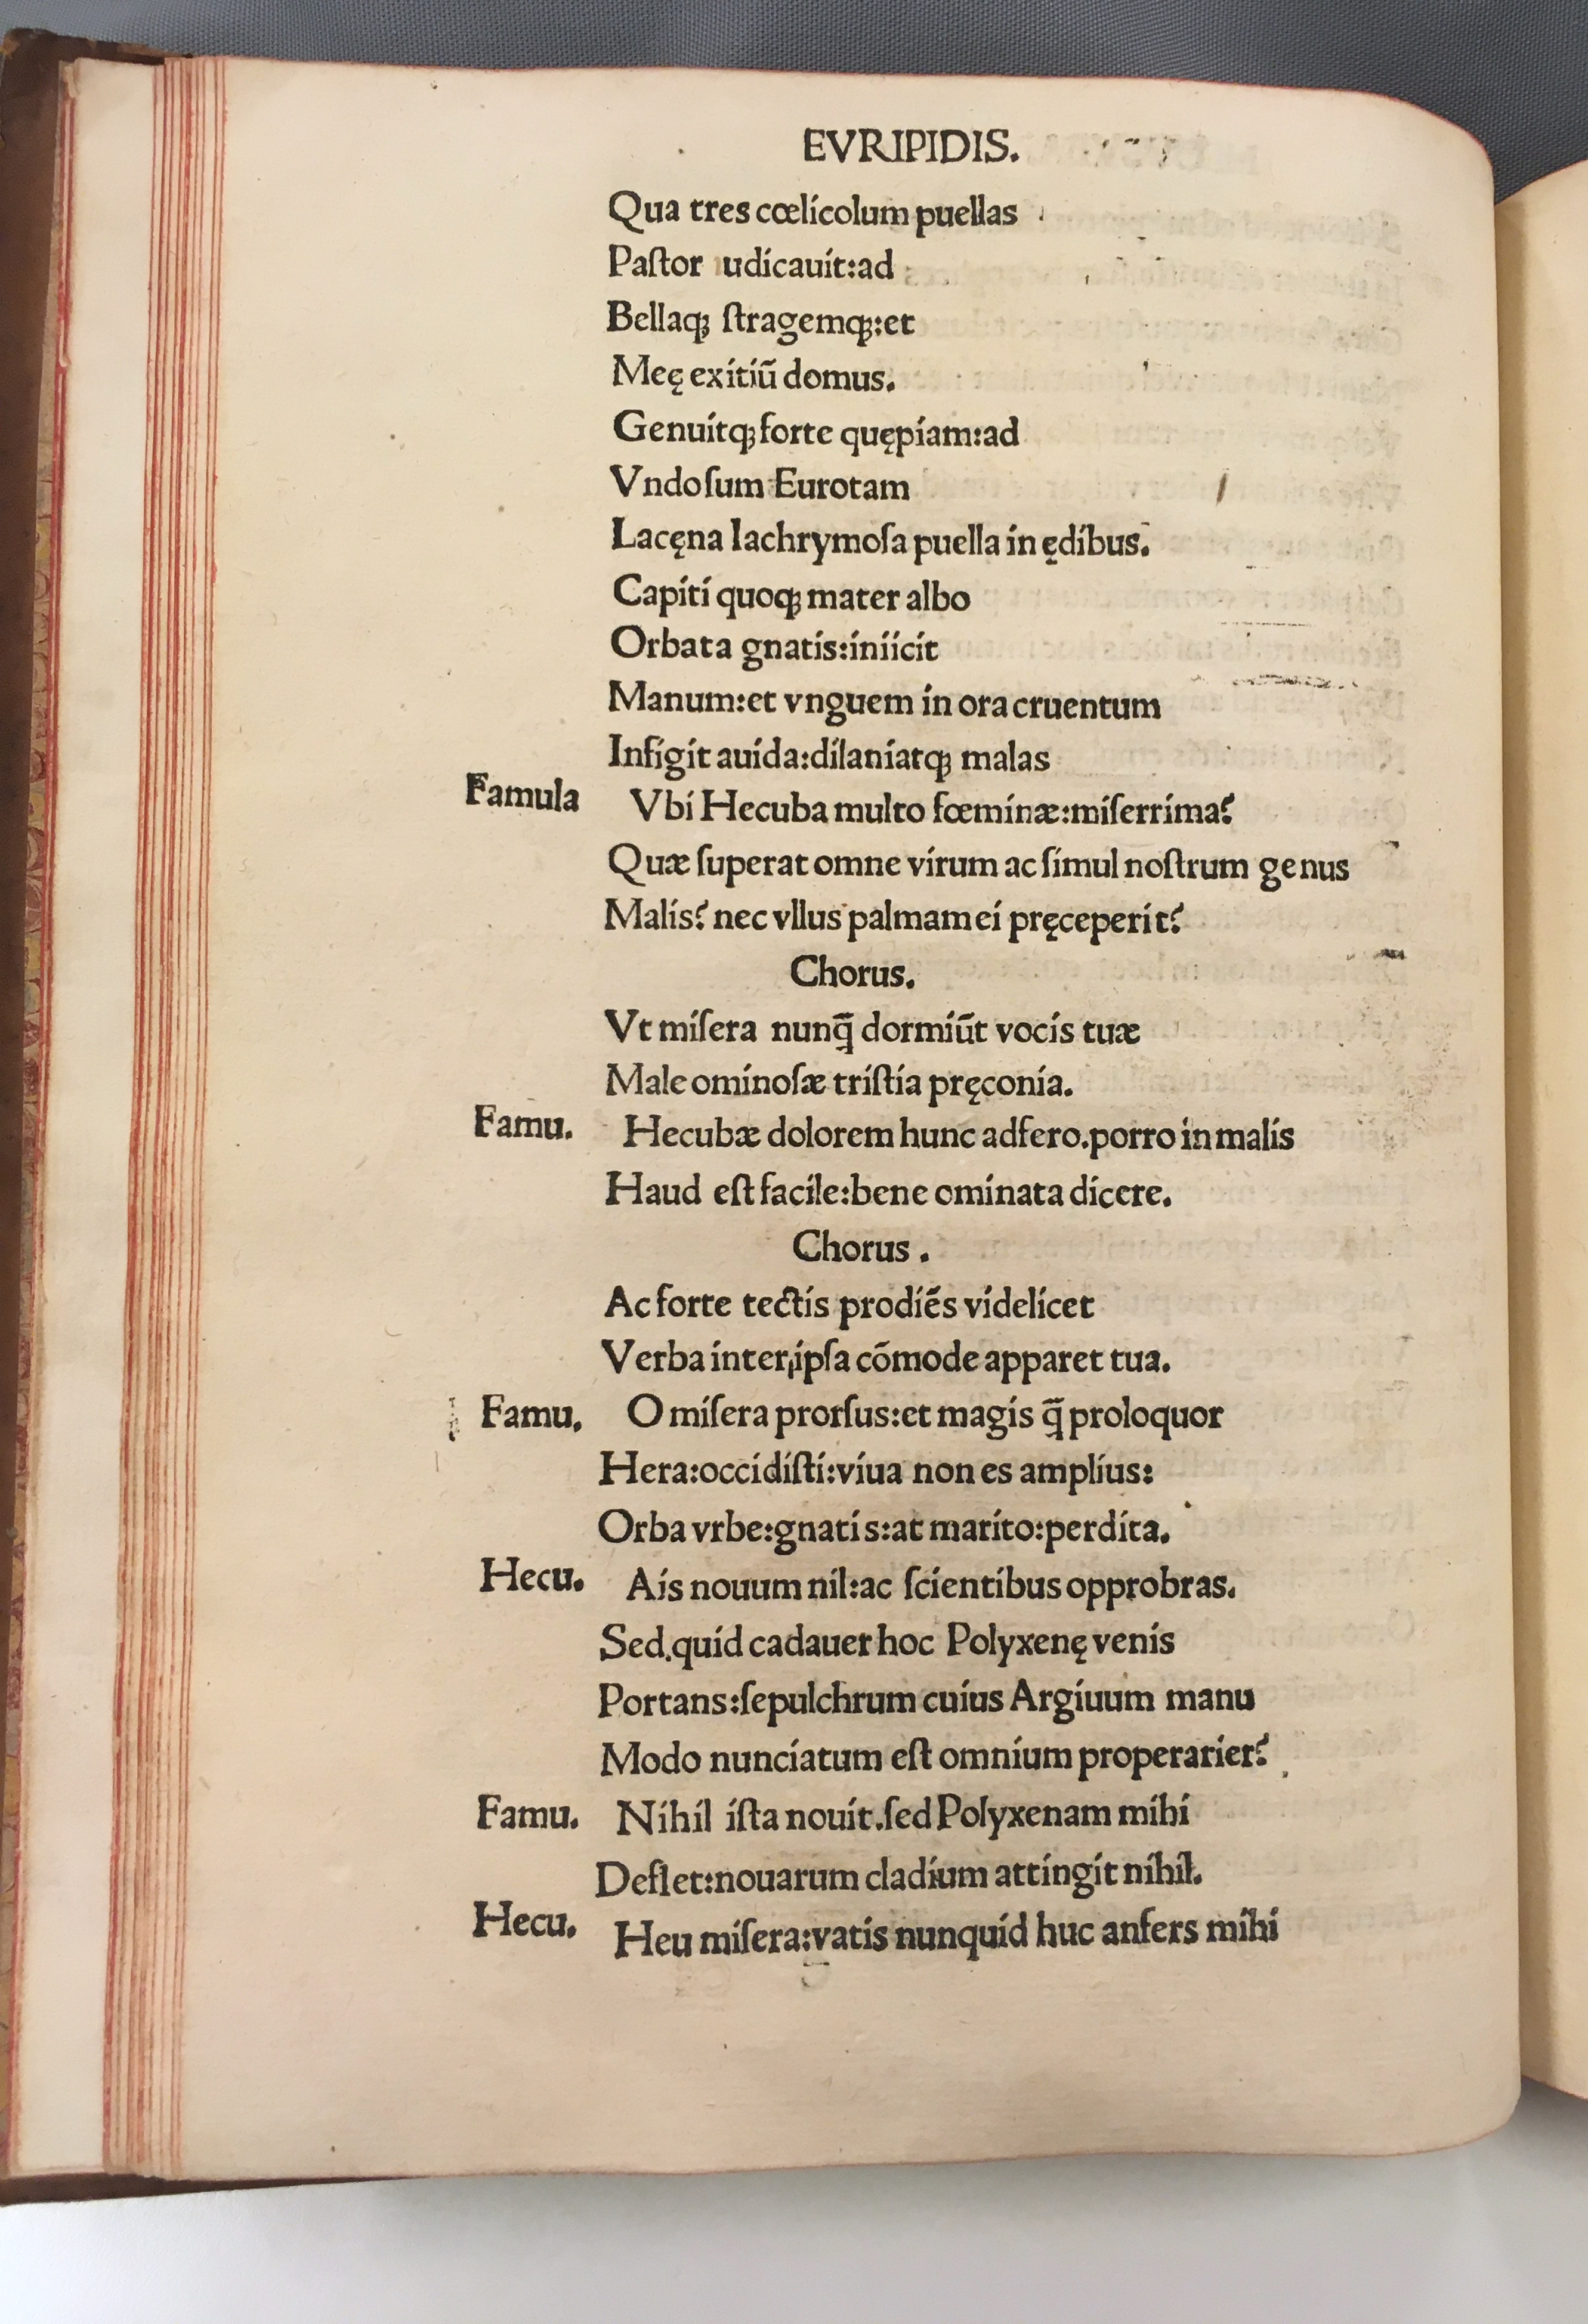 EVRIPIDIS.
Qua tres cœlicolum puellas
Paſtor iudicauit:ad
Bellaqꝫ ſtragemqꝫ:et
Meę exitiũ domus.
Genuitqꝫ forte quępiam:ad
Vndoſum Eurotam
Lacęna lachrymoſa puella in ędibus.
Capiti quoqꝫ mater albo
Orbata gnatis:iniicit
Manum:et vnguem in ora cruentum
Infigit auida:dilaniatqꝫ malas
Famula Vbi Hecuba multo fœminæ:miſerrima?
Quæ ſuperat omne virum ac ſimul noſtrum genus
Malis? nec vllus palmam ei pręceperit?
Chorus.
Vt miſera nunq̃ dormiũt vocis tuæ
Male ominoſæ triſtia pręconia.
Famu. Hecubæ dolorem hunc adfero.porro in malis
Haud eſt facile:bene ominata dicere.
Chorus.
Ac forte tectis prodiẽs videlicet
Verba inter ipſa cõmode apparet tua.
Famu. O miſera prorſus:et magis q̃ proloquor
Hera:occidiſti:viua non es amplius:
Orba vrbe:gnatis:at marito:perdita.
Hecu. Ais nouum nil:ac ſcientibus opprobras.
Sed.quid cadauer hoc Polyxenę venis
Portans:ſepulchrum cuius Argiuum manu
Modo nunciatum eſt omnium properarier?
Famu. Nihil iſta nouit.ſed Polyxenam mihi
Deflet:nouarum cladium attingit nihil.
Hecu. Heu miſera:vatis nunquid huc anfers mihi